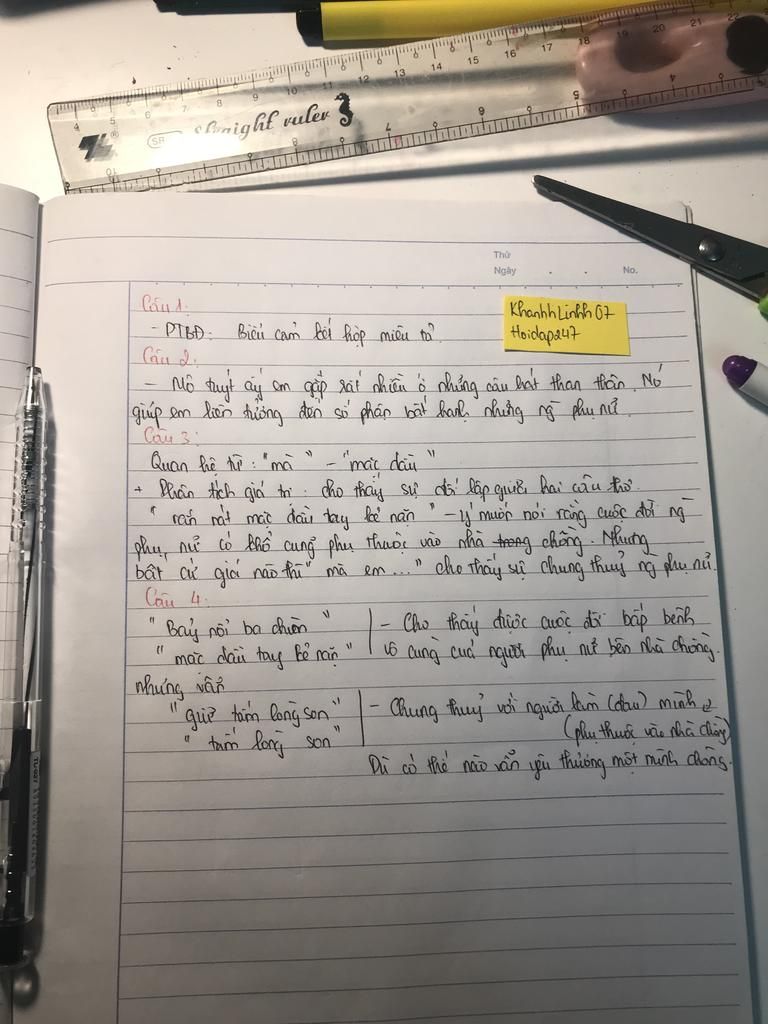 4 5 6 7 8 9 10 11 12 13 14 15 16 17 18 19 20 21 22
SR straight ruler
Thứ
Ngày . . No.
Câu 1:
KhanhhLinhh07
Hoidap247
- PTBĐ: Biểu cảm kết hợp miêu tả
Câu 2:
- Mô tuýt ấy em gặp rất nhiều ở những câu hát than thân. Nó
giúp em liên tưởng đến số phận bất hạnh những ng phụ nữ.
Câu 3:
Quan hệ từ: "mà" - "mặc dầu"
+ Phân tích giá trị: cho thấy sự đối lập giữa hai câu thơ.
"rắn nát mặc dầu tay kẻ nặn" - ý muốn nói rằng cuộc đời ng
phụ nữ có khổ cũng phụ thuộc vào nhà trong chồng. Nhưng
bất cứ giá nào thì "mà em..." cho thấy sự chung thuỷ ng phụ nữ.
Câu 4:
"Bảy nổi ba chìm" - Cho thấy được cuộc đời bấp bênh
"mặc dầu tay kẻ nặn" vô cùng của người phụ nữ bên nhà chồng.
nhưng vẫn
"giữ tấm lòng son" - Chung thuỷ với người làm (đau) mình
"tấm lòng son" (phụ thuộc vào nhà chồng)
Dù có thế nào vẫn yêu thương một mình chồng.